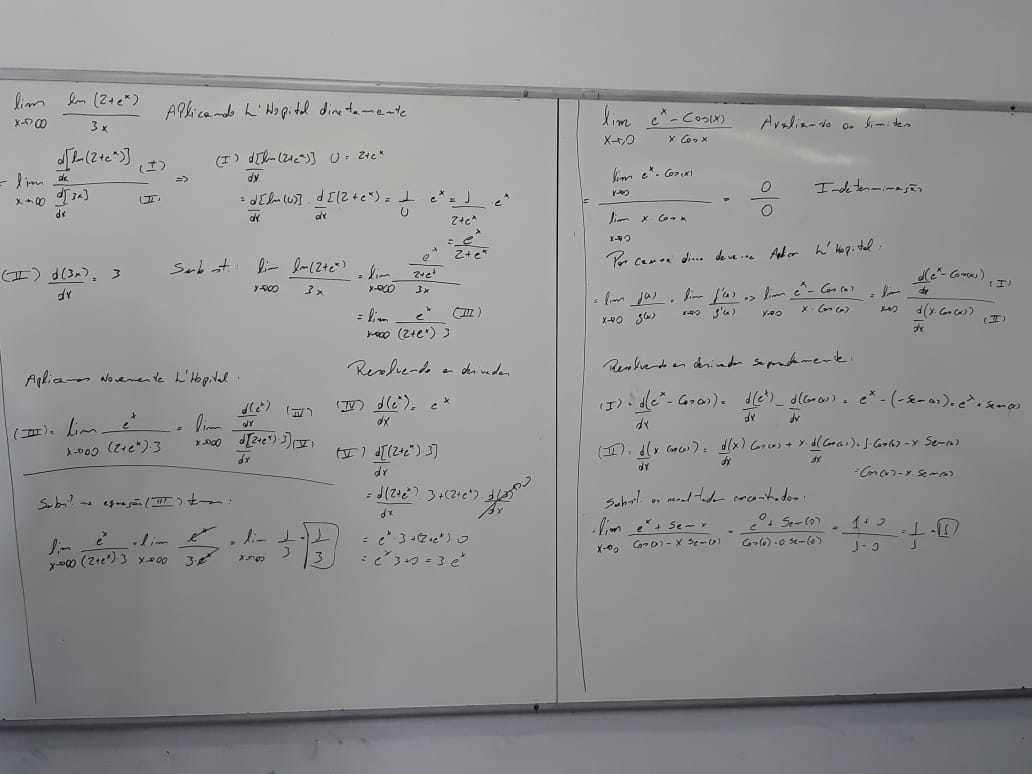 lim ln(2+e^x) / 3x Aplicando L'Hopital diretamente
x→∞
= lim d[ln(2+e^x)]/dx (I) / d[3x]/dx (II) => (I) d[ln(2+e^x)]/dx U = 2+e^x
x→∞
= d[ln(u)]/dx . d[(2+e^x)]/dx = 1/U . e^x = 1/(2+e^x) e^x
= e^x/(2+e^x)
(II) d(3x)/dx = 3 Subst: lim x→∞ ln(2+e^x)/3x = lim x→∞ (e^x/(2+e^x))/3x
= lim x→∞ e^x/((2+e^x).3) (III)
Aplicamos novamente L'Hopital. Resolvendo as derivadas
(III) = lim x→∞ e^x/((2+e^x).3) = lim x→∞ d(e^x)/dx (IV) / d[(2+e^x).3]/dx (V)
(IV) d(e^x)/dx = e^x
(V) d[(2+e^x).3]/dx
= d(2+e^x)/dx . 3 + (2+e^x) d(3)/dx → 0
= e^x . 3 + (2+e^x) . 0
= e^x 3 + 0 = 3 e^x
Subst. na equação (III) temos:
lim x→∞ e^x/((2+e^x).3) = lim x→∞ e^x/(3.e^x) = lim x→∞ 1/3 = 1/3
lim e^x - Cos(x) / x Cos x Avaliando os limites
x→0
= lim x→0 e^x - Cos(x) / lim x→0 x . Cos x = 0/0 Indeterminação
Por causa disso deve-se Aplicar L'Hopital:
= lim x→0 f(x)/g(x) = lim x→0 f'(x)/g'(x) => lim x→0 (e^x - Cos(x))/(x . Cos(x)) = lim x→0 d(e^x - Cos(x))/dx (I) / d(x.Cos(x))/dx (II)
Resolvendo as derivadas separadamente.
(I) = d(e^x - Cos(x))/dx = d(e^x)/dx - d(Cos(x))/dx = e^x - (-sen(x)) = e^x + sen(x)
(II) = d(x Cos(x))/dx = d(x)/dx Cos(x) + x . d(Cos(x))/dx = 1.Cos(x) - x Sen(x)
= Cos(x) - x . sen(x)
Subst. os resultados encontrados.
= lim x→0 (e^x + Sen x)/(Cos(x) - x Sen(x)) = (e^0 + Sen(0))/(Cos(0) - 0 Sen(0)) = (1+0)/(1-0) = 1/1 = 1